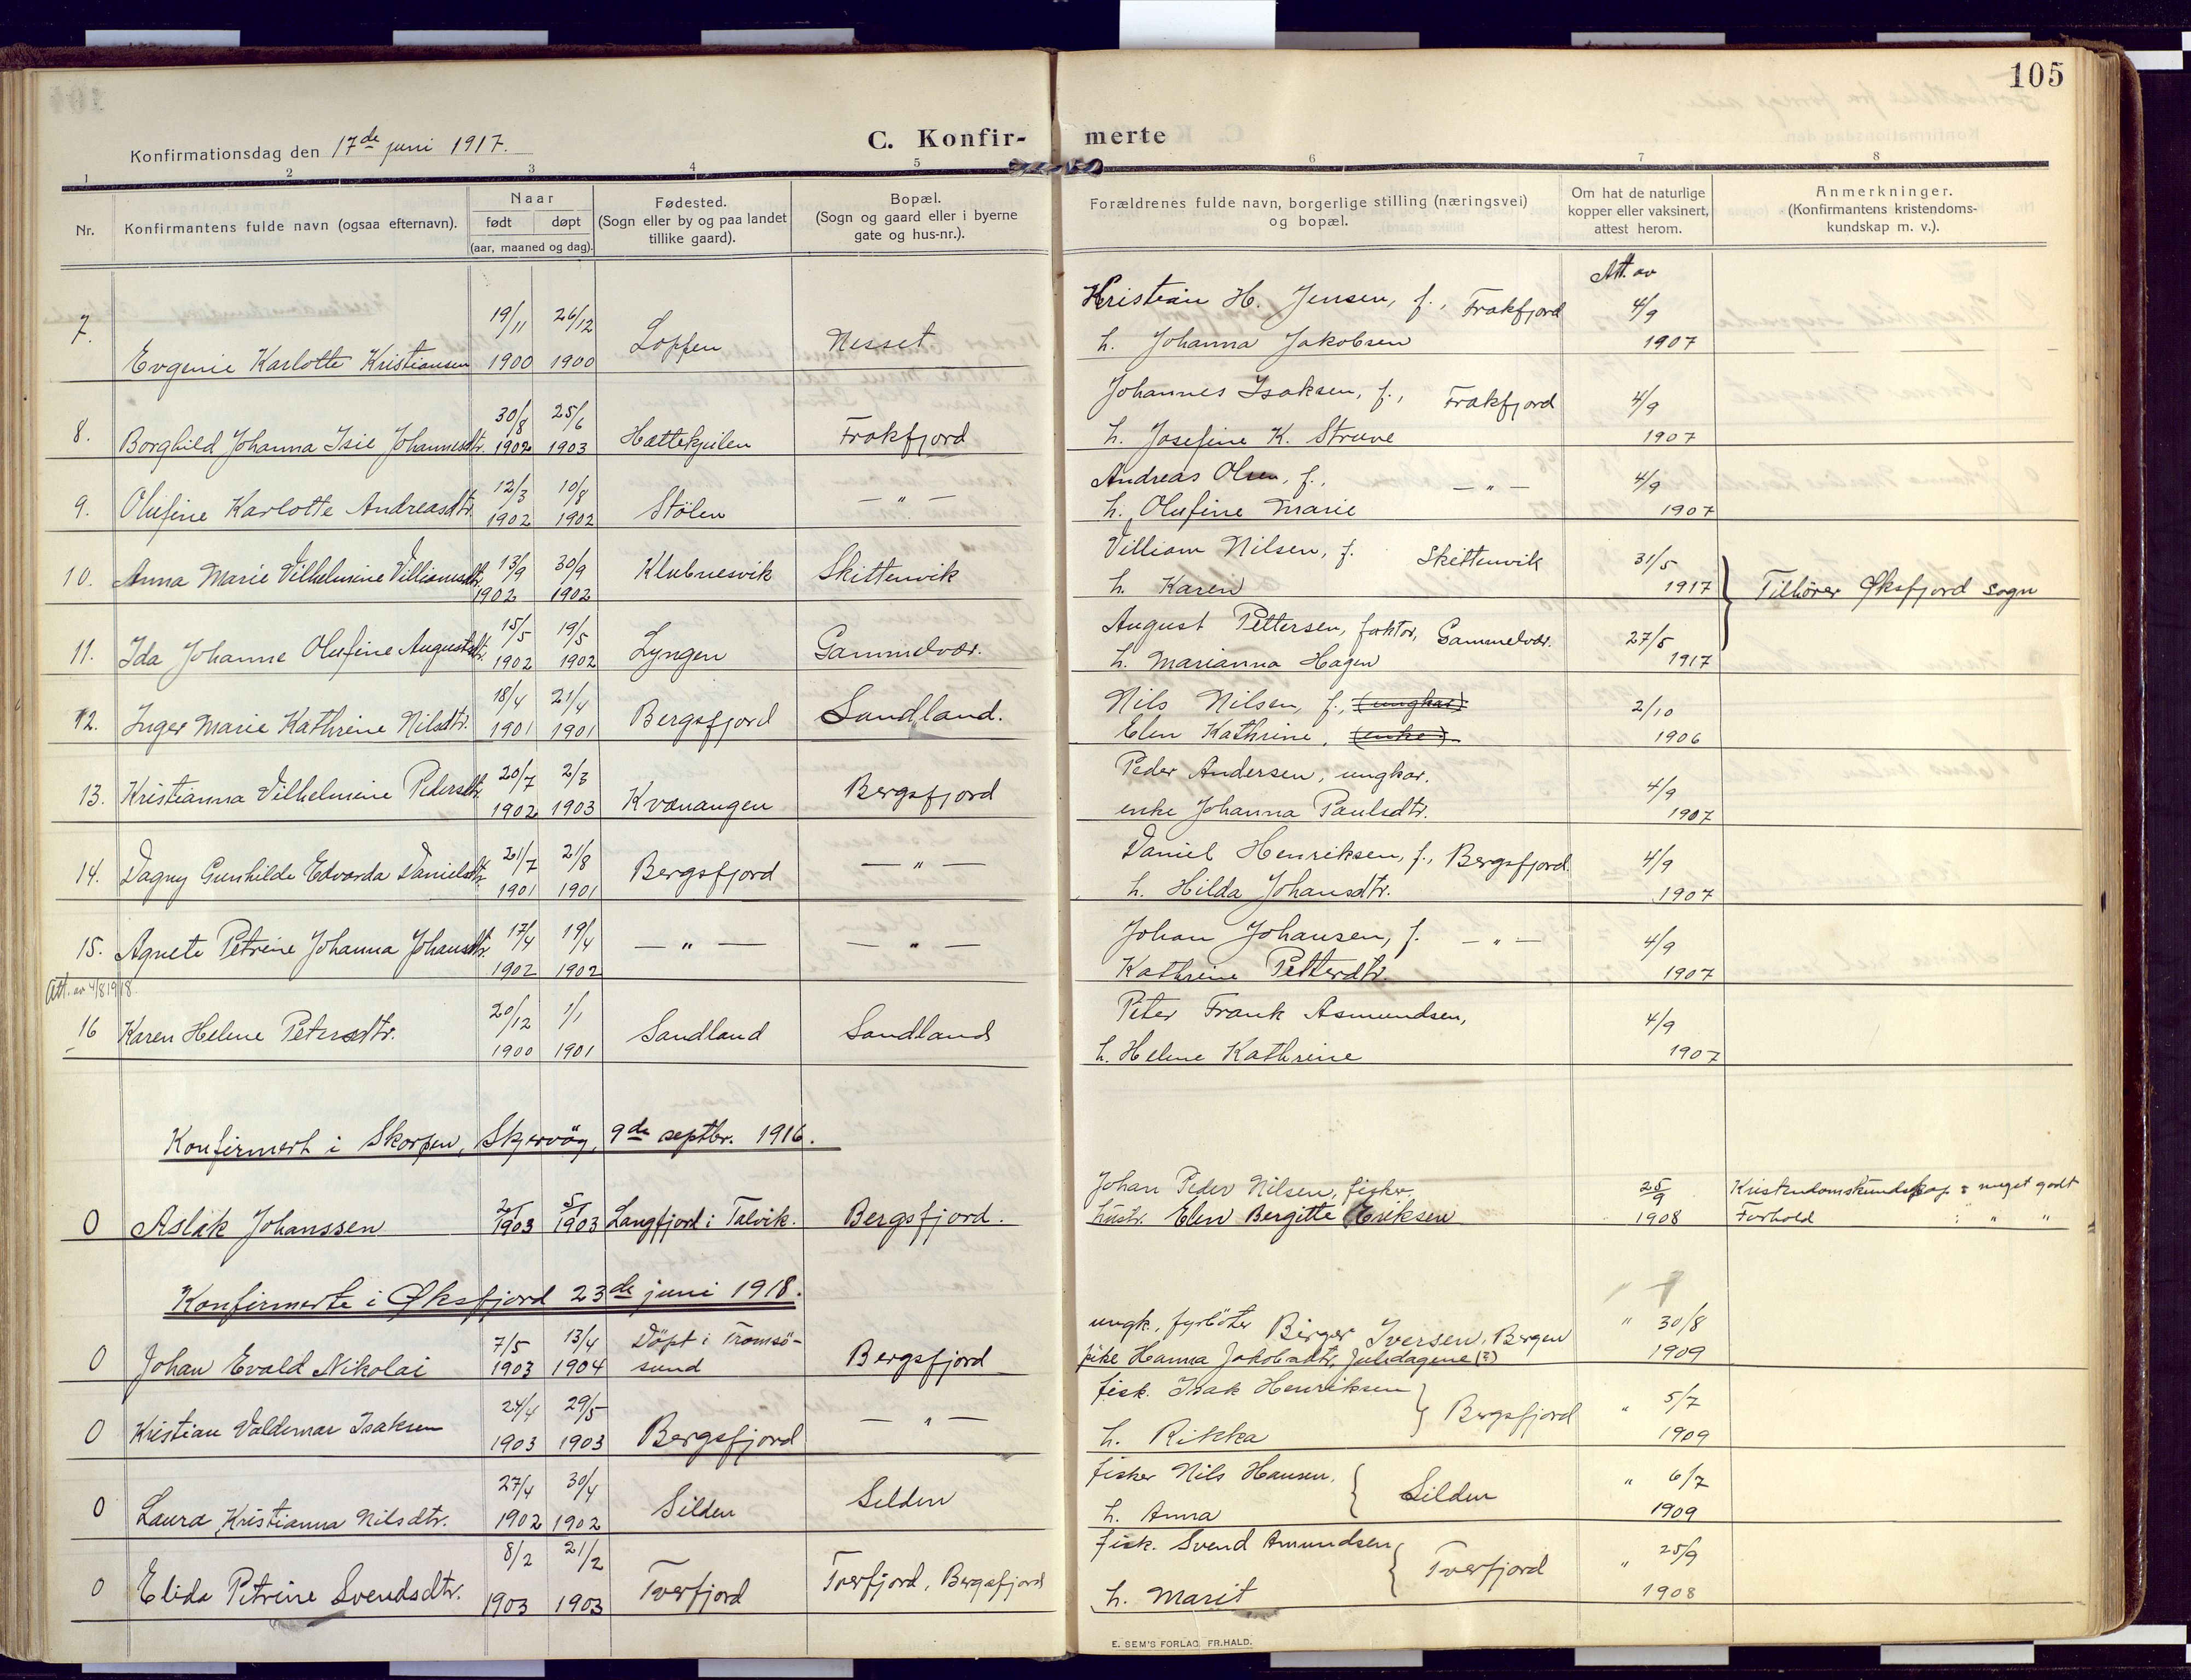 105
Konfirmationsdag den 17de juni 1917.
C. Konfirmerte
1 2 3 4 5 6 7 8
Nr.
Konfirmantens fulde navn (ogsaa efternavn).
Naar
født døpt
(aar, maaned og dag).
Fødested.
(Sogn eller by og paa landet
tillike gaard).
Bopæl.
(Sogn og gaard eller i byerne
gate og hus-nr.).
Forældrenes fulde navn, borgerlige stilling (næringsvei)
og bopæl.
Om hat de naturlige
kopper eller vaksinert,
attest herom.
Anmerkninger.
(Konfirmantens kristendoms-
kundskap m. v.).
Att. av
7. 19/11 26/12 Kristian H. Jensen, f., Frakfjord 4/9
Evgenie Karlotte Kristiansen 1900 1900 Loppen Nesset h. Johanna Jakobsen 1907
30/8 25/6 Johannes Isaksen, f., Frakfjord 4/9
8. Borghild Johanna Isie Johannesdtr. 1902 1903 Hattekjeilen Frakfjord h. Josefine K. Struve 1907
12/3 10/8 Andreas Olsen, f., — " — 4/9
9. Olufine Karlotte Andreasdtr. 1902 1902 Stölen — " — h. Olufine Marie 1907
13/9 30/9 Villiam Nilsen, f. Skittenvik 31/5
10. Anna Marie Vilhelmine Villiamsdtr. 1902 1902 Klubnesvik Skittenvik h. Karen 1917 } Tilhører Øksfjord sogn
15/5 19/5 August Pettersen, faktor, Gammelvær. 27/5
11. Ida Johanne Olufine Augustsdtr. 1902 1902 Lyngen Gammelvær. h. Marianna Hagen 1917
18/4 21/4 Nils Nilsen, f., (ungkar) 2/10
12. Inger Marie Kathrine Nilsdtr. 1901 1901 Bergsfjord Sandland. Elen Kathrine, (enke) 1906
20/7 2/3 Peder Andersen, ungkar. 4/9
13. Kristianna Vilhelmine Pedersdtr. 1902 1903 Kvænangen Bergsfjord enke Johanna Paulsdtr. 1907
21/7 21/8 Daniel Henriksen, f., Bergsfjord. 4/9
14. Dagny Gunhilde Edvarda Danielsdtr. 1901 1901 Bergsfjord — " — h. Hilda Johansdtr. 1907
17/4 19/4 Johan Johansen, f. — " — 4/9
15. Agnete Petrine Johanna Johansdtr. 1902 1902 — " — — " — Kathrine Petterdtr. 1907
Att. av 4/8 1918.
20/12 1/1 Peter Frank Asmundsen, 4/9
16 Karen Helene Petersdtr. 1900 1901 Sandland Sandland h. Helene Kathrine 1907
Konfirmert i Skorpen, Skjervöy, 9de septbr. 1916.
Johan Peder Nilsen, fisker. 25/9 Kristendomskundskap : meget godt
0 Aslak Johanssen 1903 1903 Langfjord i Talvik. Bergsfjord. hustr. Elen Bergitte Eriksen 1908 Forhold : " "
Konfirmerte i Øksfjord 23de juni 1918.
7/5 13/4 Döpt i Tromsö- ungk., fyrböter Birger Iversen, Bergen " 30/8
0 Johan Evald Nikolai 1903 1904 sund Bergsfjord pike Hanna Jakobsdtr, Julidagene (?) 1909
24/4 29/5 fisk. Isak Henriksen } Bergsfjord " 5/7
0 Kristian Valdemar Isaksen 1903 1903 Bergsfjord — " — h. Rikka 1909
27/4 30/4 fisker Nils Hansen, { Silden " 6/7
0 Laura Kristianna Nilsdtr. 1902 1902 Silden Silden h. Anna 1909
8/2 21/2 fisk. Svend Amundsen { Tverfjord " 25/9
0 Elida Petrine Svendsdtr. 1903 1903 Tverfjord Tverfjord, Bergsfjord h. Marit 1908
E. SEM'S FORLAG, FR.HALD.